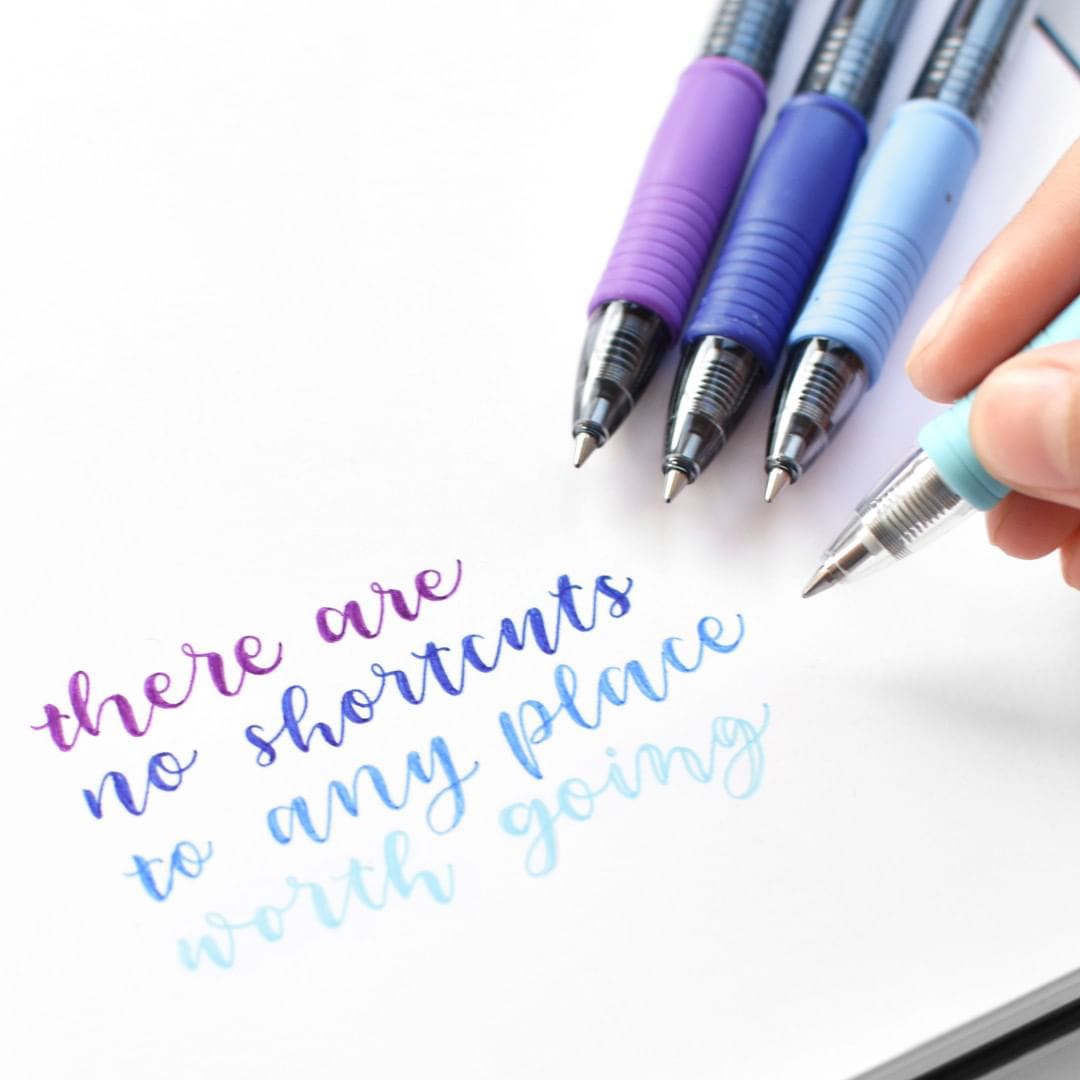 there are
no shortcuts
to any place
worth going